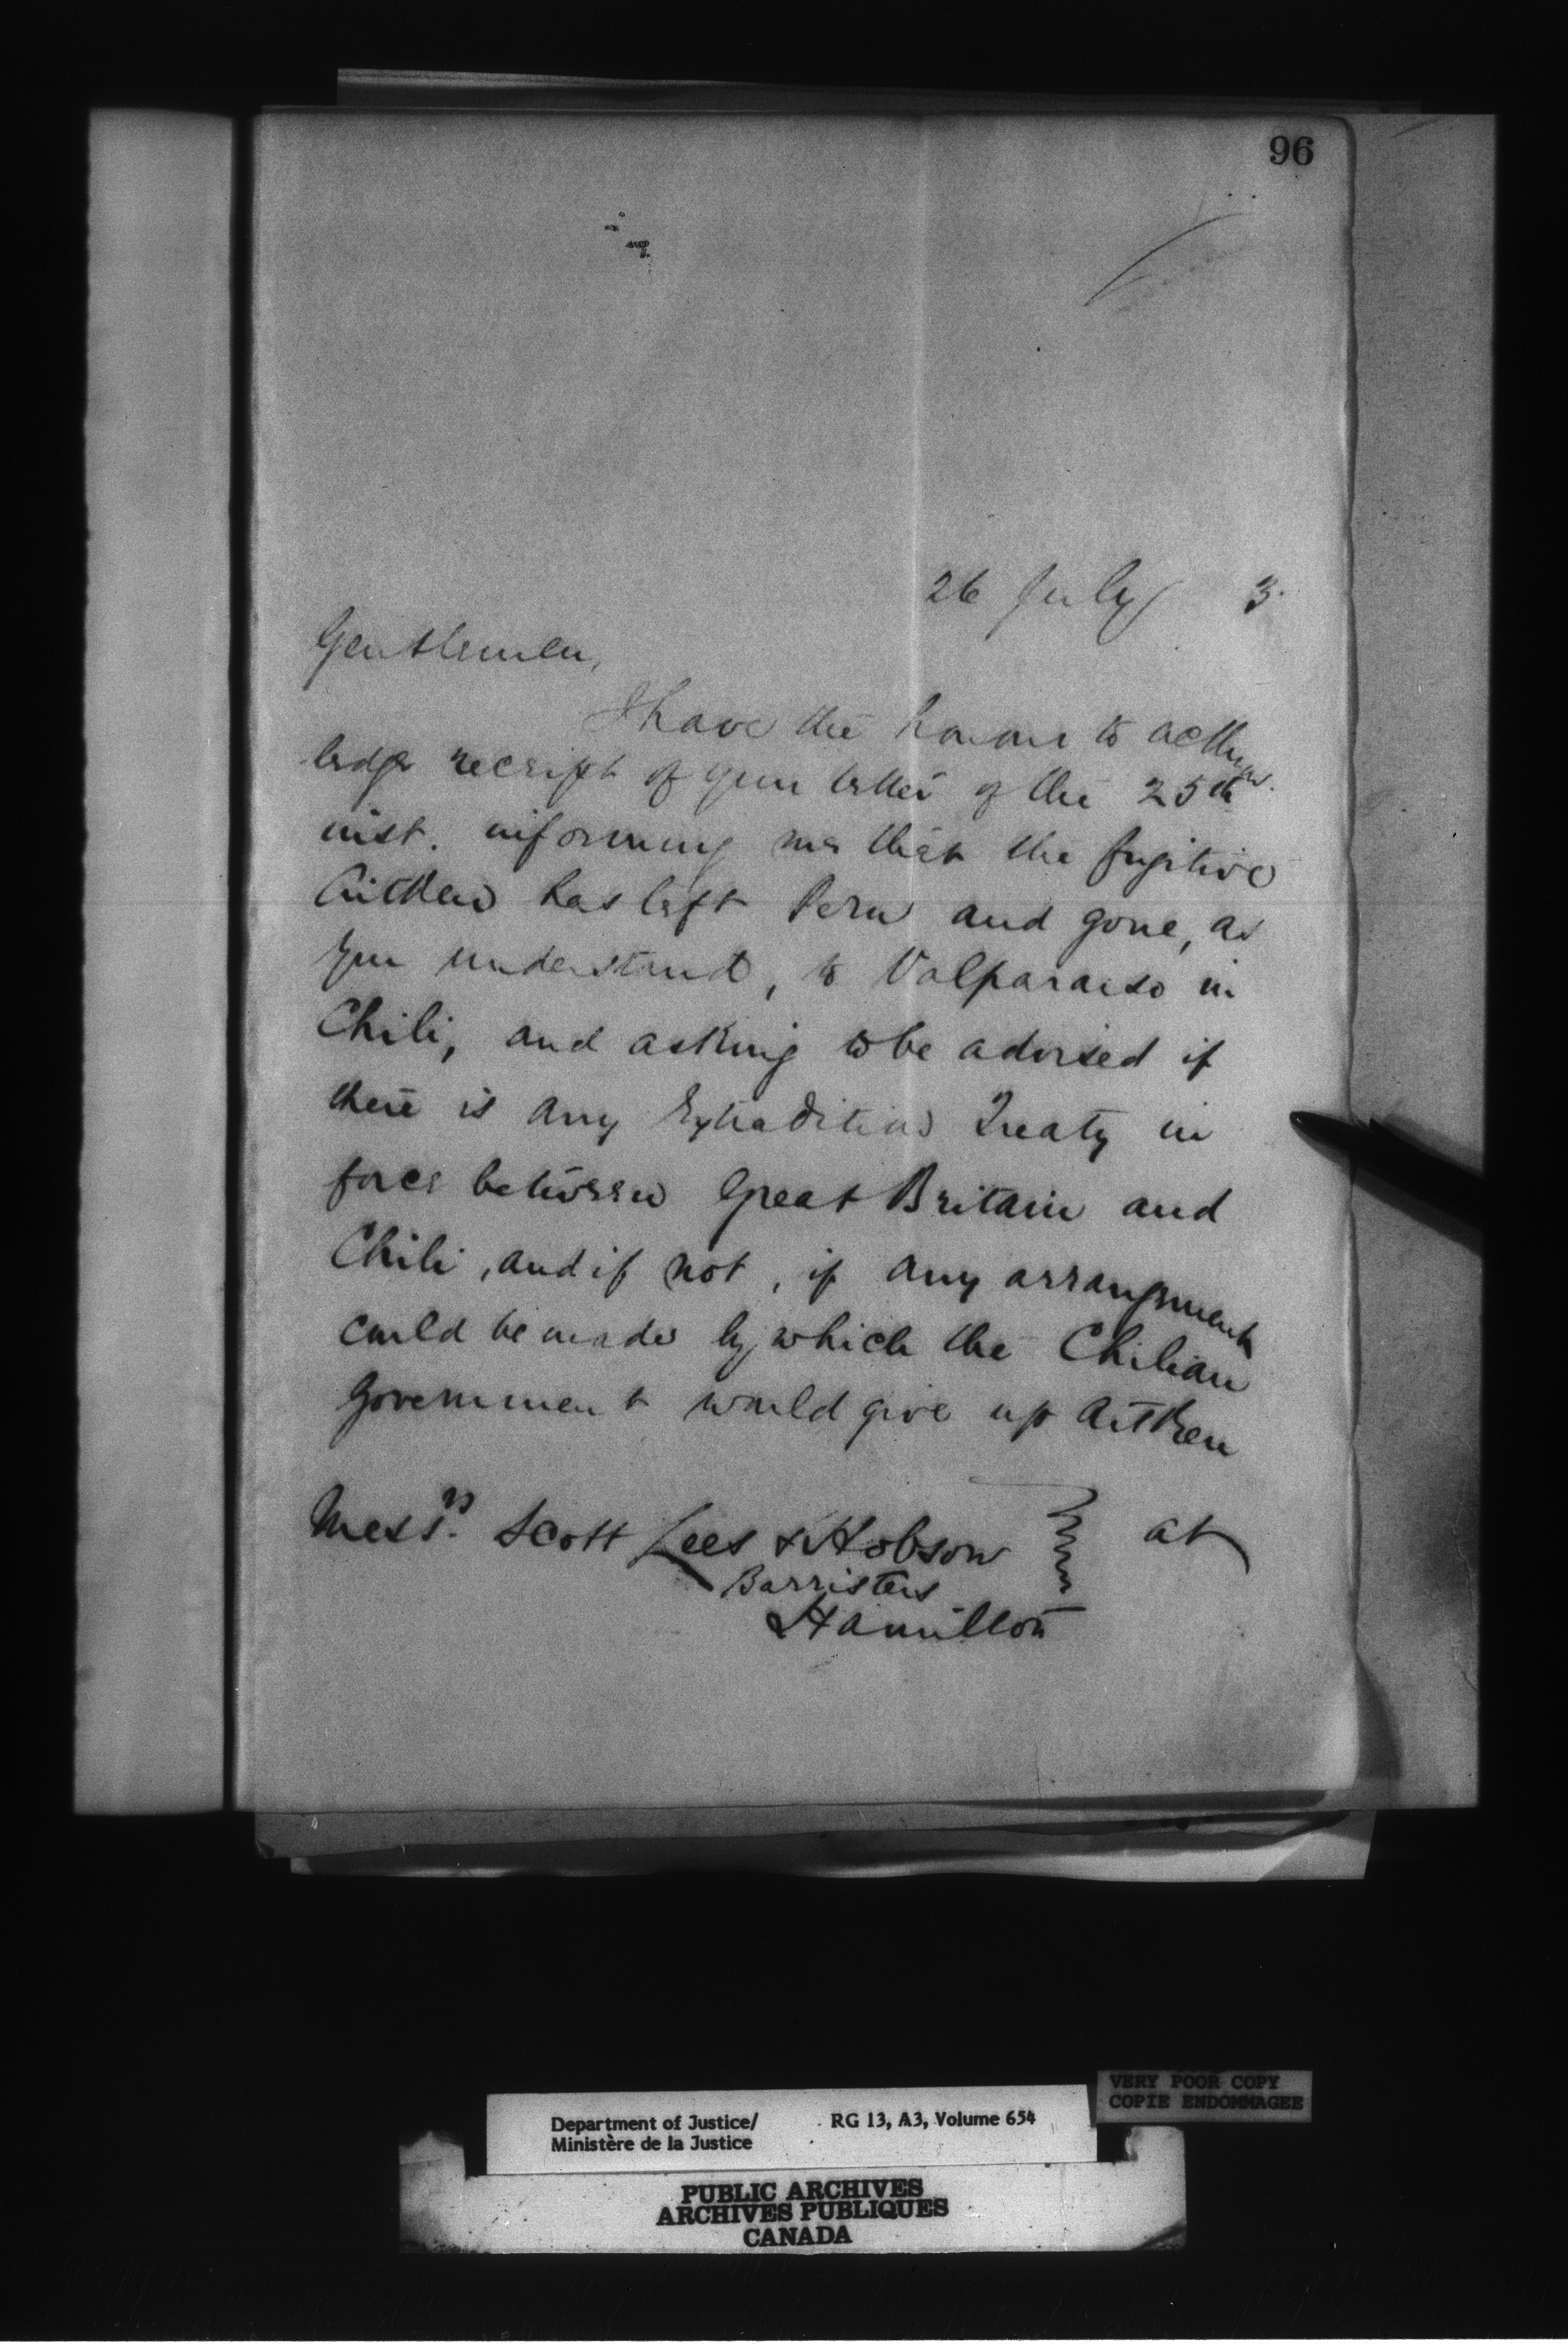 96
26 July 3.
Gentlemen,
I have the honour to acknow
ledge receipt of your letter of the 25th
inst. informing me that the fugitive
Aitken has left Peru and gone, as
you understand, to Valparaiso in
Chili, and asking to be advised if
there is any Extradition Treaty in
force between Great Britain and
Chili, and if not, if any arrangement
could be made by which the Chilian
Government would give up Aitken
at
Messrs. Scott Lees & Hobson
Barristers
Hamilton
VERY POOR COPY
COPIE ENDOMMAGEE
Department of Justice/ RG 13, A3, Volume 654
Ministère de la Justice
PUBLIC ARCHIVES
ARCHIVES PUBLIQUES
CANADA